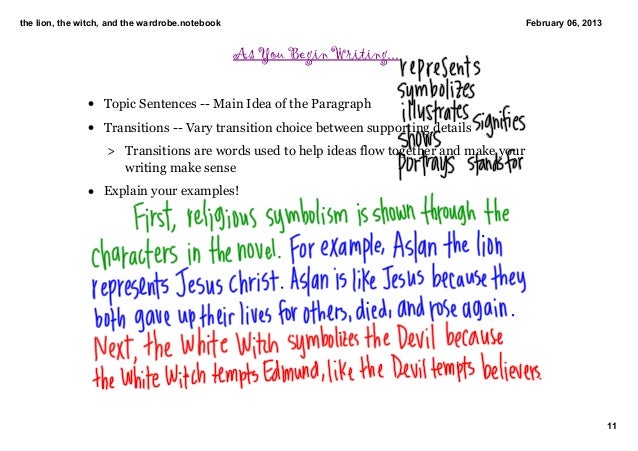 the lion, the witch, and the wardrobe.notebook
February 06, 2013
As You Begin Writing...
represents
symbolizes
illustrates
signifies
shows
portrays stands for
• Topic Sentences -- Main Idea of the Paragraph
• Transitions -- Vary transition choice between supporting details
> Transitions are words used to help ideas flow together and make your
writing make sense
• Explain your examples!
First, religious symbolism is shown through the
characters in the novel. For example, Aslan the lion
represents Jesus Christ. Aslan is like Jesus because they
both gave up their lives for others, died, and rose again.
Next, the White Witch symbolizes the Devil because
the White Witch tempts Edmund, like the Devil tempts believers.
11